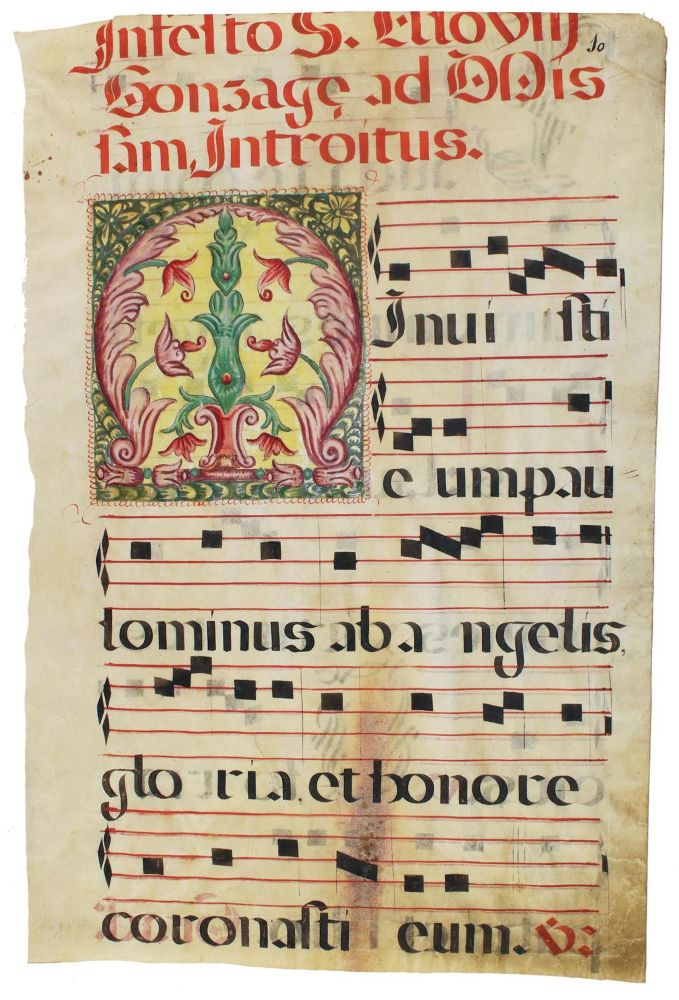 Infesto S.
Gonzagę ad Mis
ſam, Introitus.
MInuiſti
e umpau
lominus ab angelis,
gloria, et honore
coronaſti eum. V: